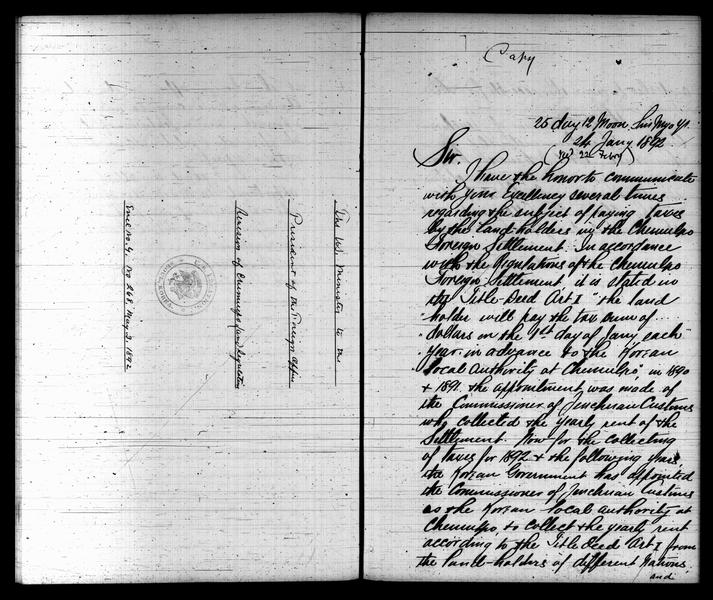 Encl No. 4, No 268, May 3, 1892
President of the Foreign Office
The U.S. Minister to the
Copy
25 day 12 Moon,
24 Jany 1892
Sir.
I have the honor to communicate
with your Excellency several times
regarding the subject of paying taxes
by the land-holders in the Chemulpo
Foreign Settlement. In accordance
with the Regulations of the Chemulpo
Foreign Settlement it is stated in
the Title-Deed Art I "the land
holder will pay the tax sum of ...
dollars on the 1st day of Jany each
year in advance to the Korean
local Authority at Chemulpo" in 1890
& 1891. the appointment was made of
the Commissioner of Jenchuan Customs
who collected the yearly rent of the
Settlement. Now for the collecting
of taxes for 1892 & the following years
the Korean Government has appointed
the Commissioner of Jenchuan Customs
as the Korean local authority at
Chemulpo, to collect the yearly rent
according to the Title Deed Art I from
the land-holders of different Nations,
and